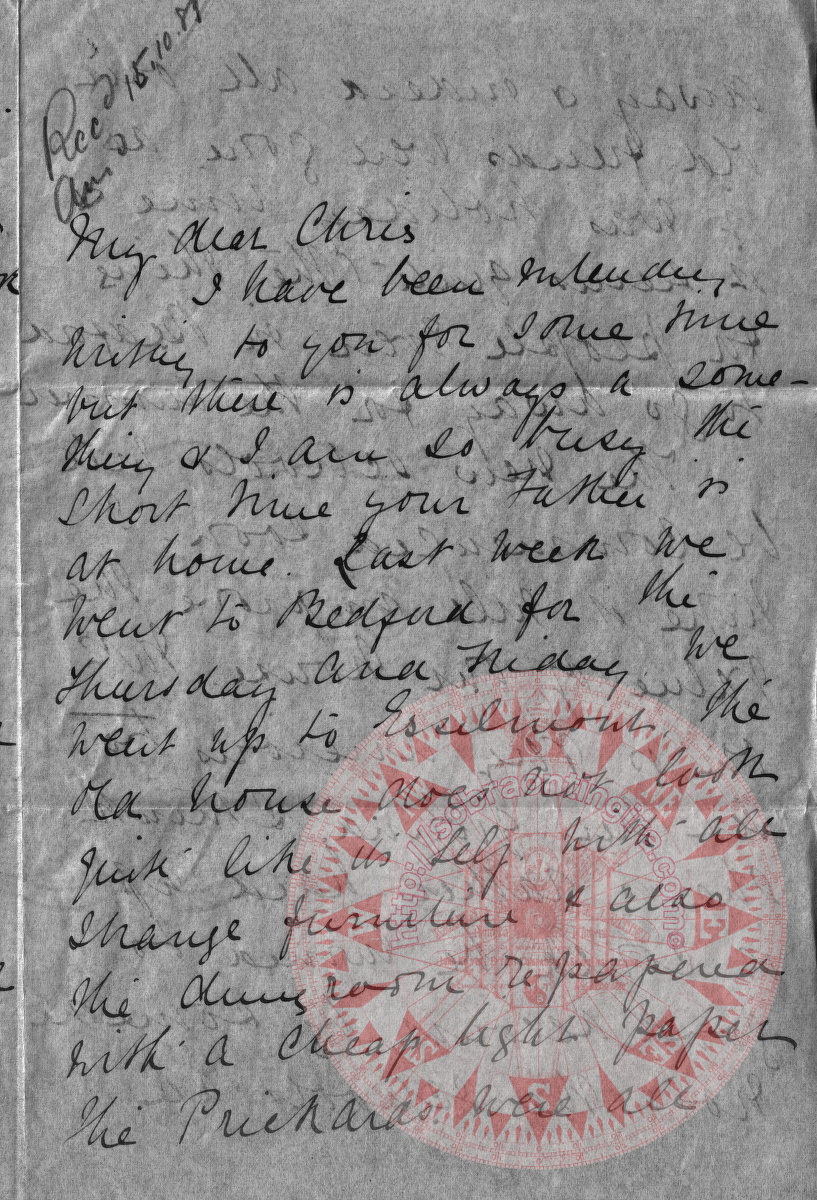 Recd 15.10.87
Ans
My dear Chris
I have been intending
writing to you for some time
but there is always a some-
thing & I am so busy the
short time your Father is
at home. Last week we
went to Bedford for the
Thursday and Friday we
went up to Esselmont. The
old house does not look
quite like its self. With all
strange furniture & also
the dining room repapered
with a cheap light paper
the Prichards were all